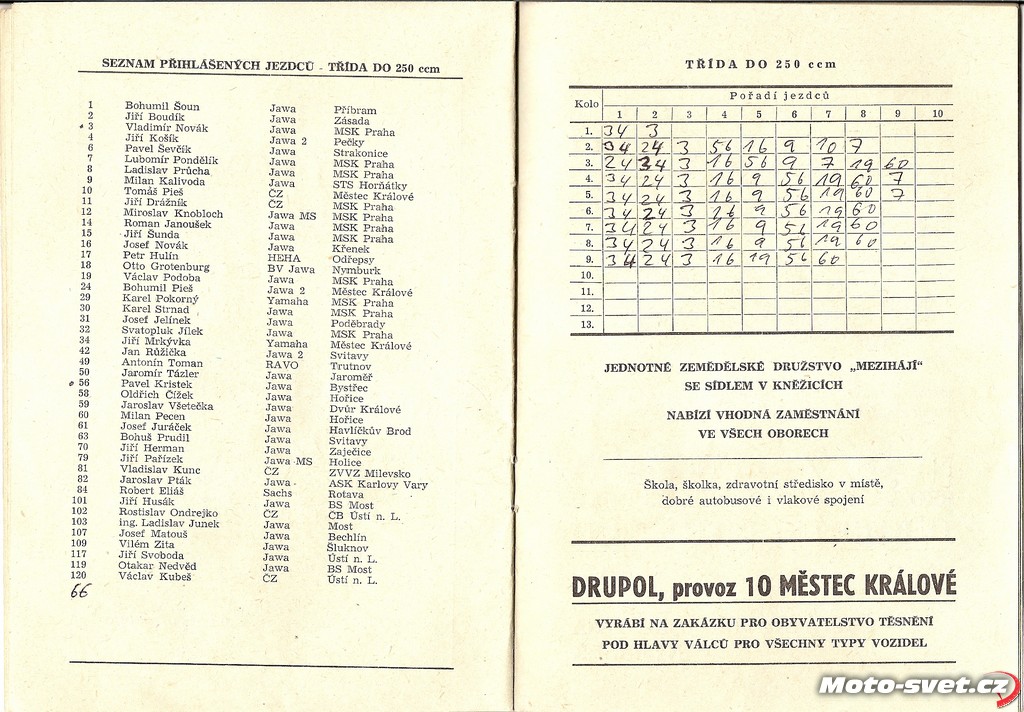 SEZNAM PŘIHLÁŠENÝCH JEZDCŮ - TŘÍDA DO 250 ccm
1 Bohumil Šoun Jawa Příbram
2 Jiří Boudík Jawa Zásada
3 Vladimír Novák Jawa MSK Praha
4 Jiří Košík Jawa 2 Pečky
6 Pavel Ševčík Jawa Strakonice
7 Lubomír Pondělík Jawa MSK Praha
8 Ladislav Průcha Jawa MSK Praha
9 Milan Kalivoda Jawa STS Horňátky
10 Tomáš Pieš ČZ Městec Králové
11 Jiří Drážník ČZ MSK Praha
12 Miroslav Knobloch Jawa MS MSK Praha
14 Roman Janoušek Jawa MSK Praha
15 Jiří Šunda Jawa MSK Praha
16 Josef Novák Jawa Křenek
17 Petr Hulín HEHA Odřepsy
18 Otto Grotenburg BV Jawa Nymburk
19 Václav Podoba Jawa MSK Praha
24 Bohumil Pieš Jawa 2 Městec Králové
29 Karel Pokorný Yamaha MSK Praha
30 Karel Strnad Jawa MSK Praha
31 Josef Jelínek Jawa Poděbrady
32 Svatopluk Jílek Jawa MSK Praha
34 Jiří Mrkývka Yamaha Městec Králové
42 Jan Růžička Jawa 2 Svitavy
49 Antonín Toman RAVO Trutnov
50 Jaromír Tázler Jawa Jaroměř
56 Pavel Kristek Jawa Bystřec
58 Oldřich Čížek Jawa Hořice
59 Jaroslav Všetečka Jawa Dvůr Králové
60 Milan Pecen Jawa Hořice
61 Josef Juráček Jawa Havlíčkův Brod
63 Bohuš Prudil Jawa Svitavy
70 Jiří Herman Jawa Zaječice
79 Jiří Pařízek Jawa MS Holice
81 Vladislav Kunc ČZ ZVVZ Milevsko
82 Jaroslav Pták Jawa ASK Karlovy Vary
84 Robert Eliáš Sachs Rotava
101 Jiří Husák Jawa BS Most
102 Rostislav Ondrejko ČZ ČB Ústí n. L.
103 ing. Ladislav Junek Jawa Most
107 Josef Matouš Jawa Bechlín
109 Vilém Zita Jawa Šluknov
117 Jiří Svoboda Jawa Ústí n. L.
119 Otakar Nedvěd Jawa BS Most
120 Václav Kubeš ČZ Ústí n. L.
66
TŘÍDA DO 250 ccm
Kolo Pořadí jezdců
1 2 3 4 5 6 7 8 9 10
1. 34 3
2. 34 24 3 56 16 9 10 7
3. 24 34 3 16 56 9 7 19 60
4. 34 24 3 16 9 56 19 60 7
5. 34 24 3 16 9 56 19 60 7
6. 34 24 3 16 9 56 19 60
7. 34 24 3 16 9 56 19 60
8. 34 24 3 16 9 56 19 60
9. 34 24 3 16 19 56 60
10.
11.
12.
13.
JEDNOTNÉ ZEMĚDĚLSKÉ DRUŽSTVO „MEZIHÁJÍ“
SE SÍDLEM V KNĚŽICÍCH
NABÍZÍ VHODNÁ ZAMĚSTNÁNÍ
VE VŠECH OBORECH
Škola, školka, zdravotní středisko v místě,
dobré autobusové i vlakové spojení
DRUPOL, provoz 10 MĚSTEC KRÁLOVÉ
VYRÁBÍ NA ZAKÁZKU PRO OBYVATELSTVO TĚSNĚNÍ
POD HLAVY VÁLCŮ PRO VŠECHNY TYPY VOZIDEL
Moto-svet.cz